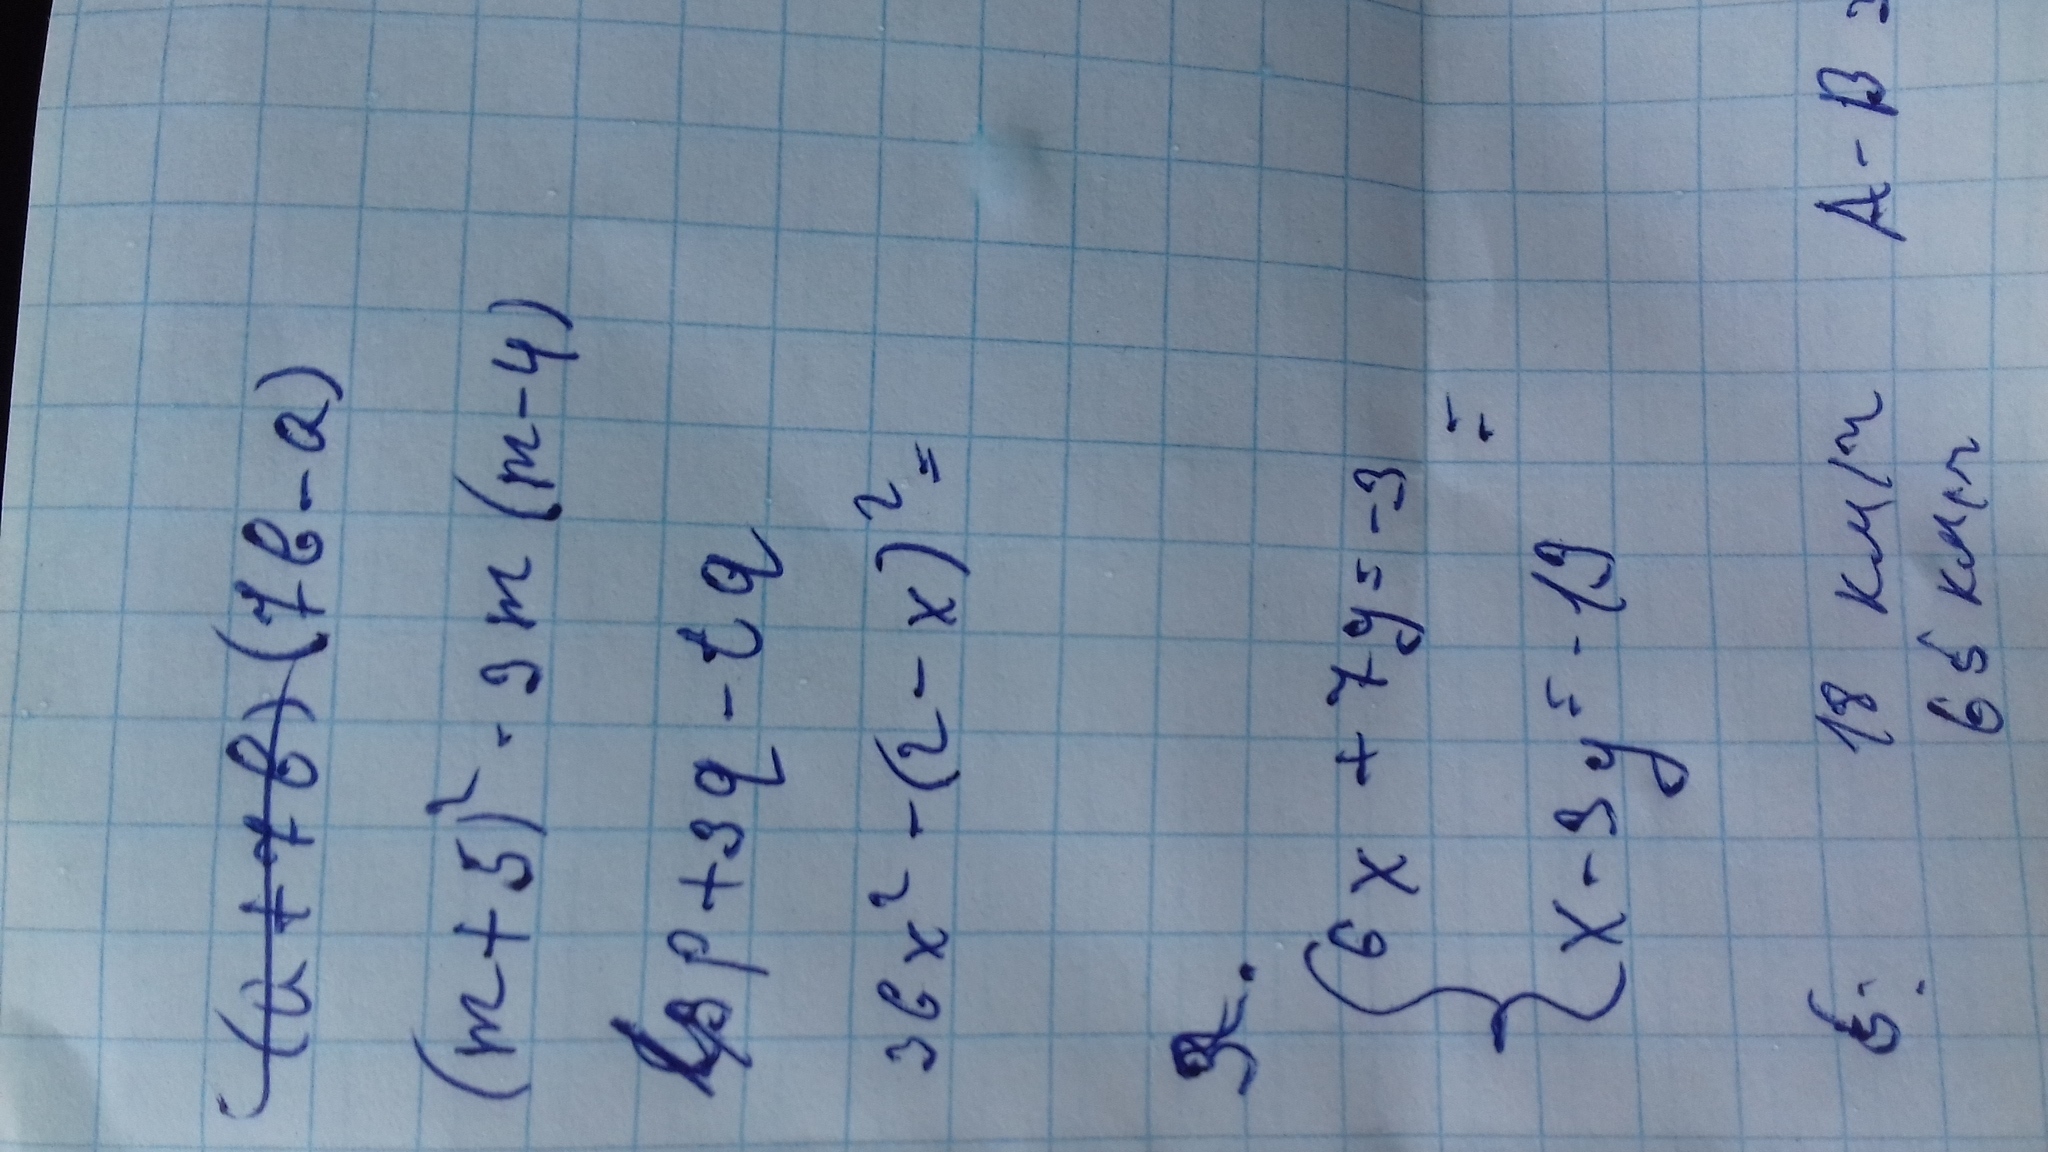 (a+7b)(7b-a)
(m+5)² - 3m(m-4)
3p+3q - tq
36x² - (2-x)² =
3.
{ 6x + 7y = -3
=
x - 3y = -19
5. 18 км/ч А-В
65 км/ч